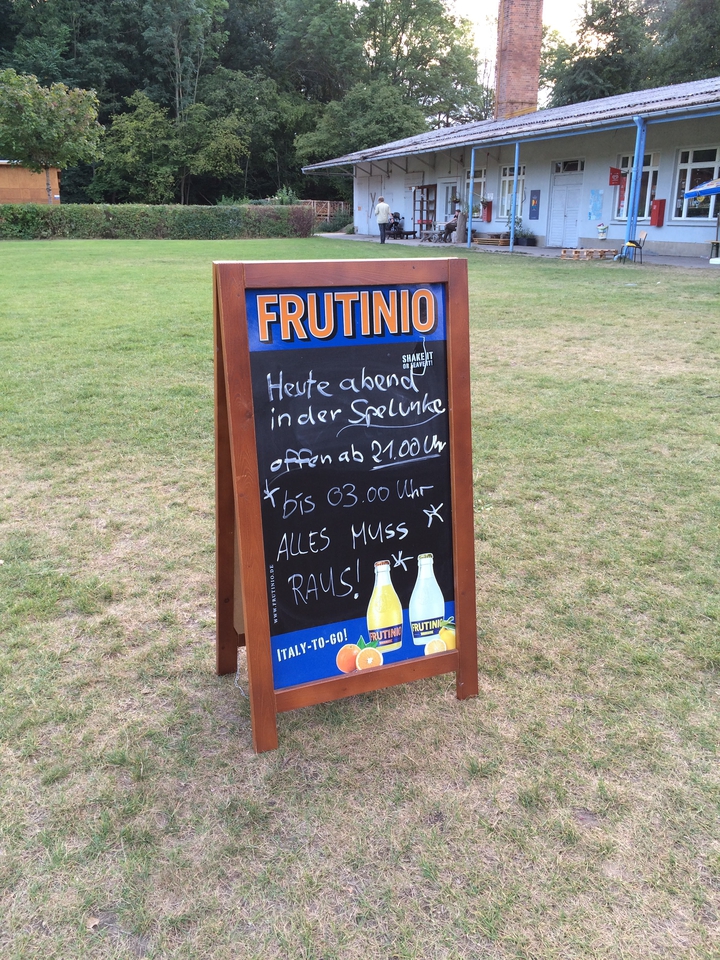 FRUTINIO
SHAKE IT
OR LEAVE IT!
Heute abend
in der Spelunke
offen ab 21.00 Uhr
* bis 03.00 Uhr
ALLES MUSS *
RAUS! *
WWW.FRUTINIO.DE
ITALY-TO-GO!
FRUTINIO
FRUTINIO